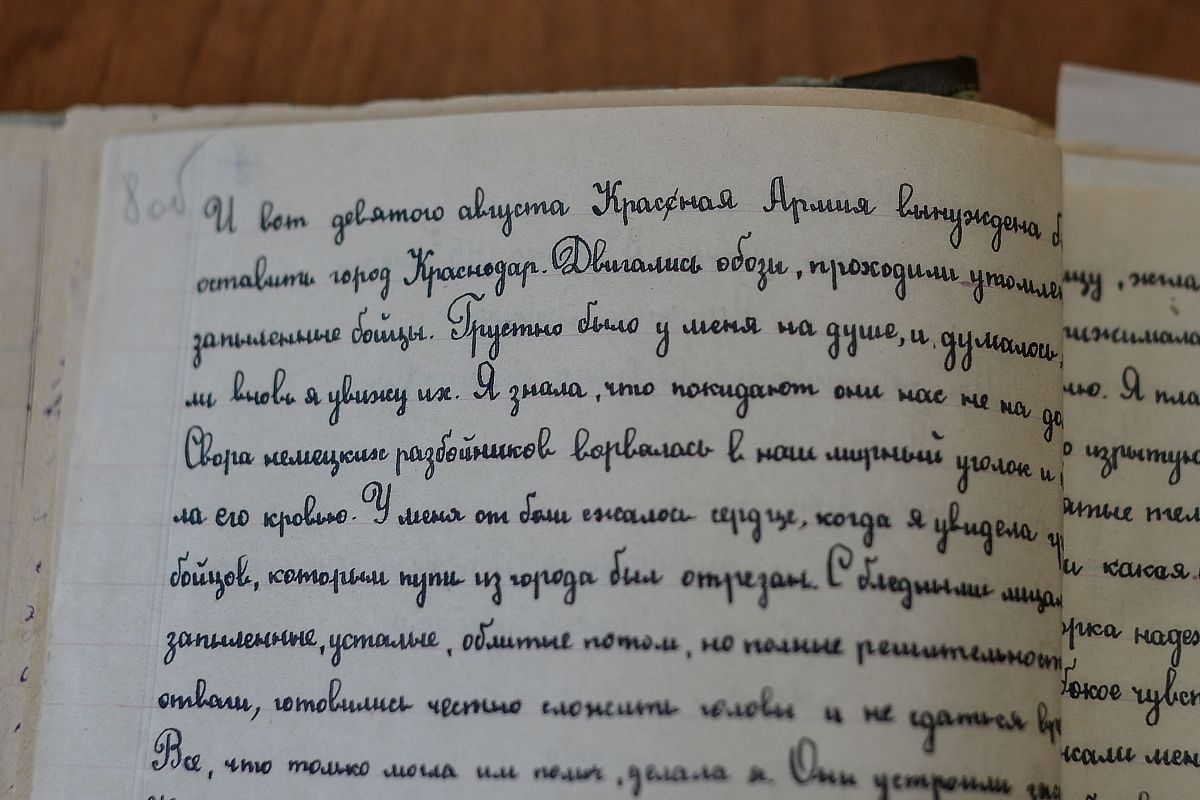 8 об
И вот девятого августа Красная Армия вынуждена б
оставить город Краснодар. Двигались обозы, проходили утомлен
запыленные бойцы. Грустно было у меня на душе, и думалось,
ли вновь я увижу их. Я знала, что покидают они нас не на до
Свора немецких разбойников ворвалась в наш мирный уголок и
ла его кровью. У меня от боли сжалось сердце, когда я увидела
бойцов, которым путь из города был отрезан. С бледными лица
запыленные, усталые, облитые потом, но полные решительност
отваги, готовились честно сложить головы и не сдаться вр
Все, что только могла им помоч, делала я. Они устроили
щу, жила
ижимала
ю. Я пла
о изрытую
атые тел
и какая
орка надеж
бокое чувст
жали мен